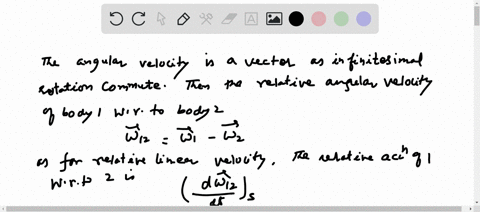 The angular velocity is a vector as infinitesimal
rotation commute. Then the relative angular velocity
of body 1 w.r. to body 2
ω⃗₁₂ = ω⃗₁ - ω⃗₂
as for relative linear velocity. The relative accⁿ of 1
w.r.to 2 is
(dω⃗₁₂/dt)ₛ